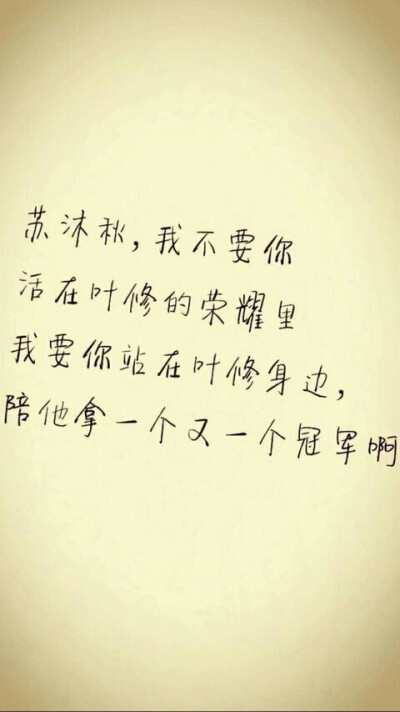 苏沐秋,我不要你
活在叶修的荣耀里
我要你站在叶修身边,
陪他拿一个又一个冠军啊